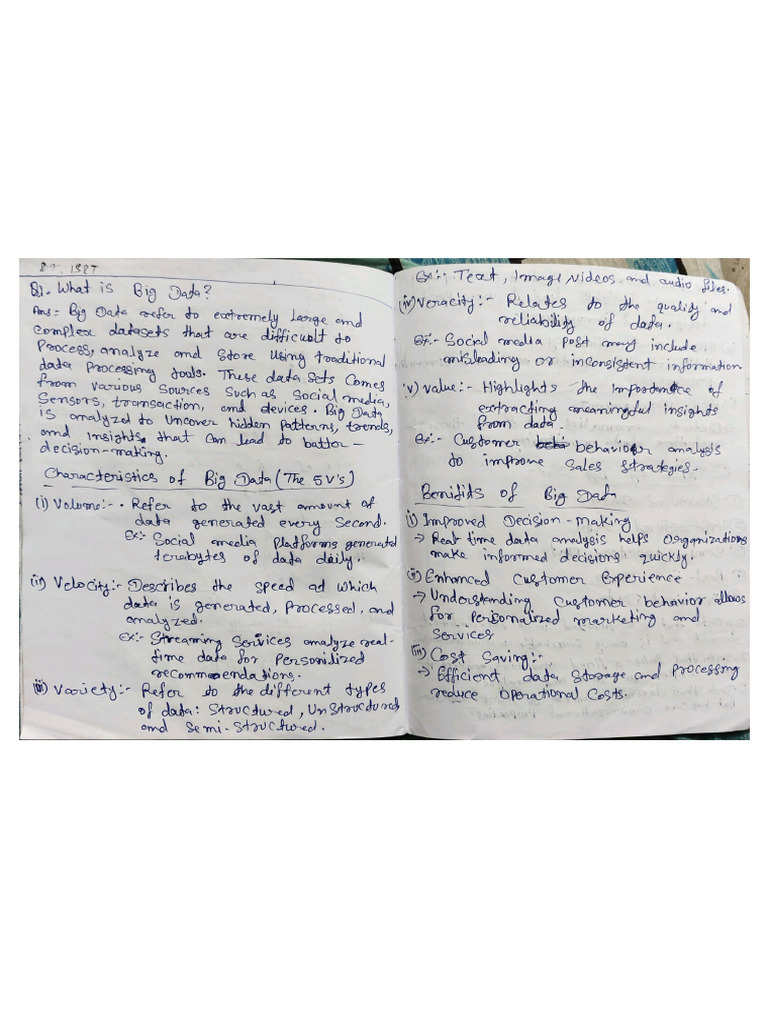 Q1. What is Big Data?
Ans:- Big Data refer to extremely large and
complex datasets that are difficult to
Process, analyze and store using traditional
data processing tools. These data sets comes
from various sources such as social media,
Sensors, transaction, and devices. Big Data
is analyzed to uncover hidden patterns, trends,
and insights that can lead to battor-
decision-making.
Characteristics of Big Data (The 5V's)
(i) Volume:- • Refer to the vast amount of
data generated every second.
Ex:- Social media platforms generated
terabytes of data daily.
(ii) Velocity:- Describes the speed at which
data is generated, Processed, and
analyzed.
Ex:- Streaming Services analyze real-
time data for Personilized
recommendations.
(iii) Variety:- Refer to the different types
of data: Structured, UnStructured
and Semi-Structured.
Ex:- Text, Image Videos and audio files.
(iv) Veracity:- Relates to the quality and
reliability of data.
Ex:- Social media post may include
misleading or inconsistent information
(v) Value:- Highlights the Importance of
extracting meaningful insights
from data.
Ex:- Customer behavior analysis
to improve sales strategies.
Benifits of Big Data
i) Improved Decision-Making
→ Real time data analysis helps Organizations
make informed decisions quickly.
(ii) Enhanced Customer Experience
→ Understanding customer behavior allows
for personalized marketing and
services
(iii) Cost Saving:-
→ Efficient data storage and Processing
reduce Operational Costs.